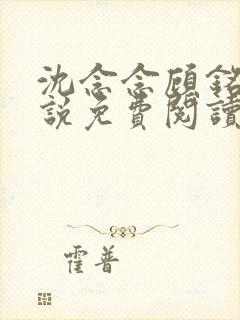 沈念念顧銘
說免費閱讀
霍普